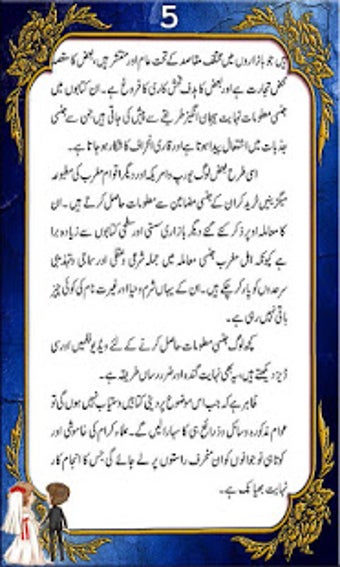 5
ہیں جو بازاروں میں مختلف مقاصد کے تحت عام اور منتشر ہیں، بعض کا مقصد
محض تجارت ہے اور بعض کا ہدف فحش کاری کا فروغ ہے۔ ان کتابوں میں
جنسی معلومات نہایت ہیجان انگیز طریقے سے پیش کی جاتی ہیں جن سے جنسی
جذبات میں اشتعال پیدا ہوتا ہے اور قاری انحراف کا شکار ہو جاتا ہے۔
اسی طرح بعض لوگ یورپ و امریکہ اور دیگر اقوام مغرب کی مطبوعہ
میگزینیں خرید کر ان کے جنسی مضامین سے معلومات حاصل کرتے ہیں۔ ان
کا معاملہ اوپر ذکر کئے گئے دیگر بازاری سستی اور سطحی کتابوں سے زیادہ برا
ہے کیونکہ اہل مغرب جنسی معاملہ میں جملہ شرعی و عقلی اور سماجی و تہذیبی
سرحدوں کو پار کر چکے ہیں۔ ان کے یہاں شرم و حیا اور غیرت نام کی کوئی چیز
باقی نہیں رہی ہے۔
کچھ لوگ جنسی معلومات حاصل کرنے کے لئے ویڈیو فلمیں اور سی
ڈیز دیکھتے ہیں، یہ بھی نہایت گندہ اور ضرر رساں طریقہ ہے۔
ظاہر ہے کہ جب اس موضوع پر دینی کتابیں دستیاب نہیں ہوں گی تو
عوام مذکورہ وسائل و ذرائع ہی کا سہارا لیں گے۔ علماء کرام کی خاموشی اور
کوتاہی نوجوانوں کو ان منحرف راستوں پر لے جائے گی جس کا انجام کار
نہایت بھیانک ہے۔